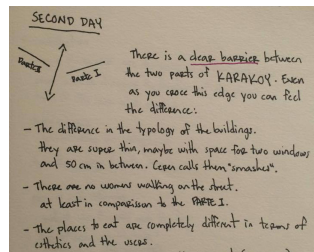 SECOND DAY
PARTE II
PARTE I
There is a clear barrier between
the two parts of KARAKOY. Even
as you croce this edge you can feel
the difference:
- The difference in the typology of the buildings.
they are super thin, maybe with space for two windows
and 50 cm in between. Ceren calls them "smashes".
- There are no womens walking on the street.
at least in comparisson to the PARTE I.
- The places to eat are completely different in terms of
esthetics and the users.